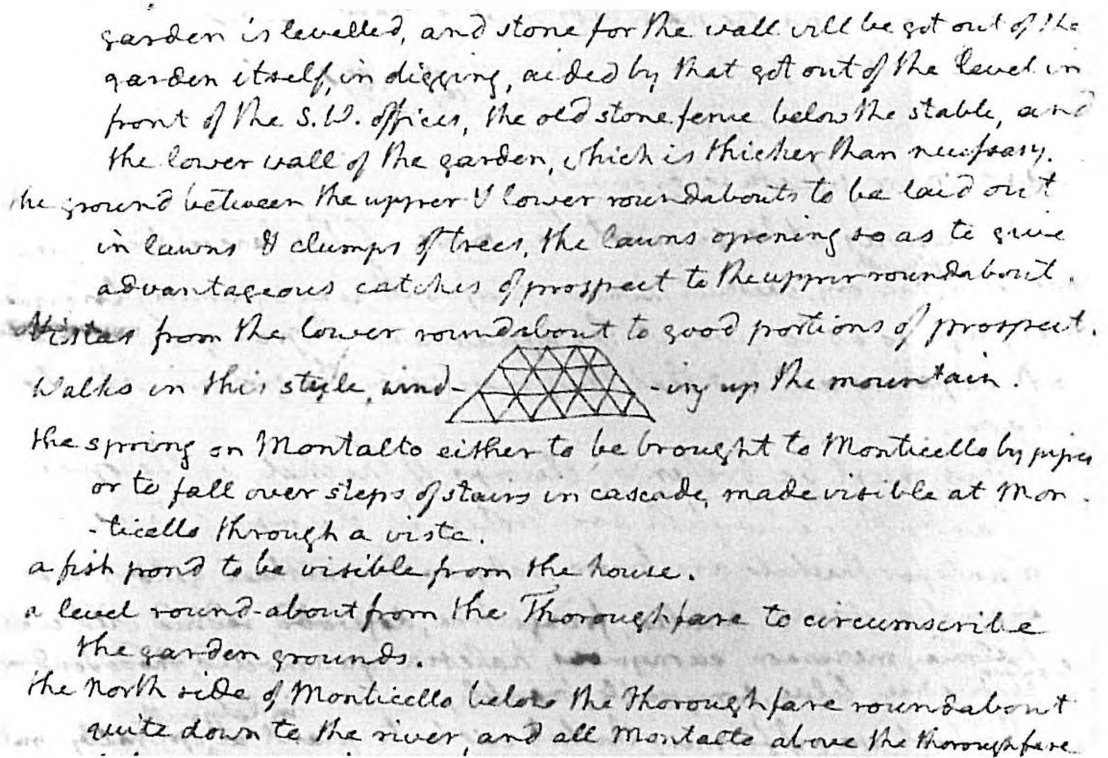 garden is levelled, and stone for the wall will be got out of the
garden itself, in digging, aided by that got out of the level in
front of the S.W. offices, the old stone fence below the stable, and
the lower wall of the garden, which is thicker than necessary.
the ground between the upper & lower roundabouts to be laid out
in lawns & clumps of trees, the lawns opening so as to give
advantageous catches of prospect to the upper roundabout.
Vistas from the lower roundabout to good portions of prospect.
Walks in this style, wind- -ing up the mountain.
the spring on Montalto either to be brought to Monticello by pipes
or to fall over steps of stairs in cascade, made visible at Mon-
-ticello through a vista.
a fish pond to be visible from the house.
a level round-about from the Thoroughfare to circumscribe
the garden grounds.
the North side of Monticello below the thoroughfare roundabout
quite down to the river, and all Montalto above the thoroughfare